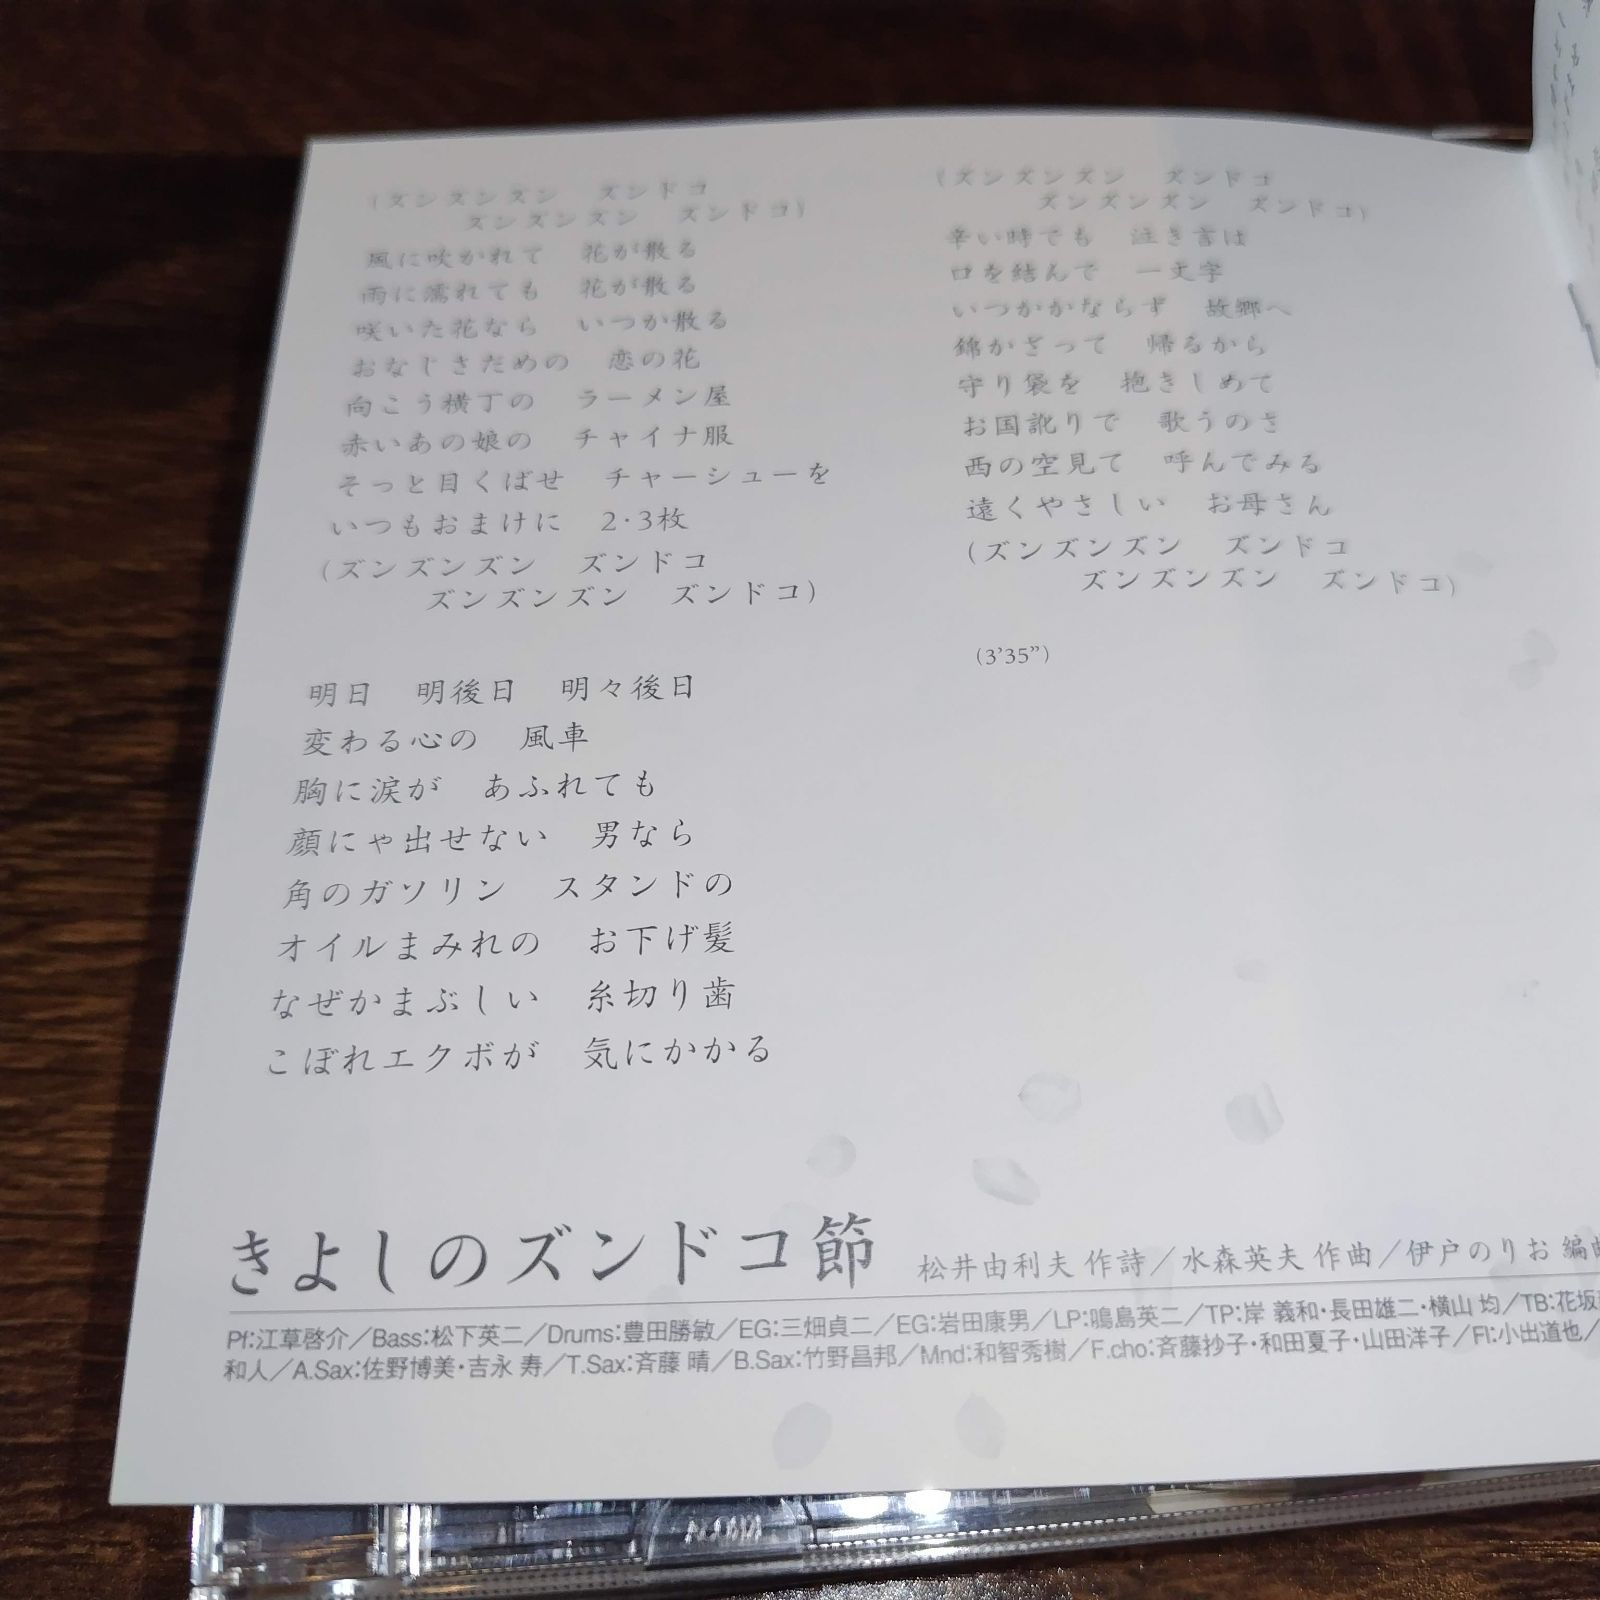 (ズンズンズン　ズンドコ
ズンズンズン　ズンドコ)
風に吹かれて　花が散る
雨に濡れても　花が散る
咲いた花なら　いつか散る
おなじさだめの　恋の花
向こう横丁の　ラーメン屋
赤いあの娘の　チャイナ服
そっと目くばせ　チャーシューを
いつもおまけに　2・3枚
(ズンズンズン　ズンドコ
ズンズンズン　ズンドコ)
明日　明後日　明々後日
変わる心の　風車
胸に涙が　あふれても
顔にゃ出せない　男なら
角のガソリン　スタンドの
オイルまみれの　お下げ髪
なぜかまぶしい　糸切り歯
こぼれエクボが　気にかかる
(ズンズンズン　ズンドコ
ズンズンズン　ズンドコ)
辛い時でも　泣き言は
口を結んで　一文字
いつかかならず　故郷へ
錦かざって　帰るから
守り袋を　抱きしめて
お国訛りで　歌うのさ
西の空見て　呼んでみる
遠くやさしい　お母さん
(ズンズンズン　ズンドコ
ズンズンズン　ズンドコ)
(3'35")
きよしのズンドコ節 松井由利夫 作詩／水森英夫 作曲／伊戸のりお 編曲
Pf:江草啓介／Bass:松下英二／Drums:豊田勝敏／EG:三畑貞二／EG:岩田康男／LP:鳴島英二／TP:岸 義和・長田雄二・横山 均／TB:花坂
和人／A.Sax:佐野博美・吉永 寿／T.Sax:斉藤 晴／B.Sax:竹野昌邦／Mnd:和智秀樹／F.cho:斉藤抄子・和田夏子・山田洋子／Fl:小出道也／